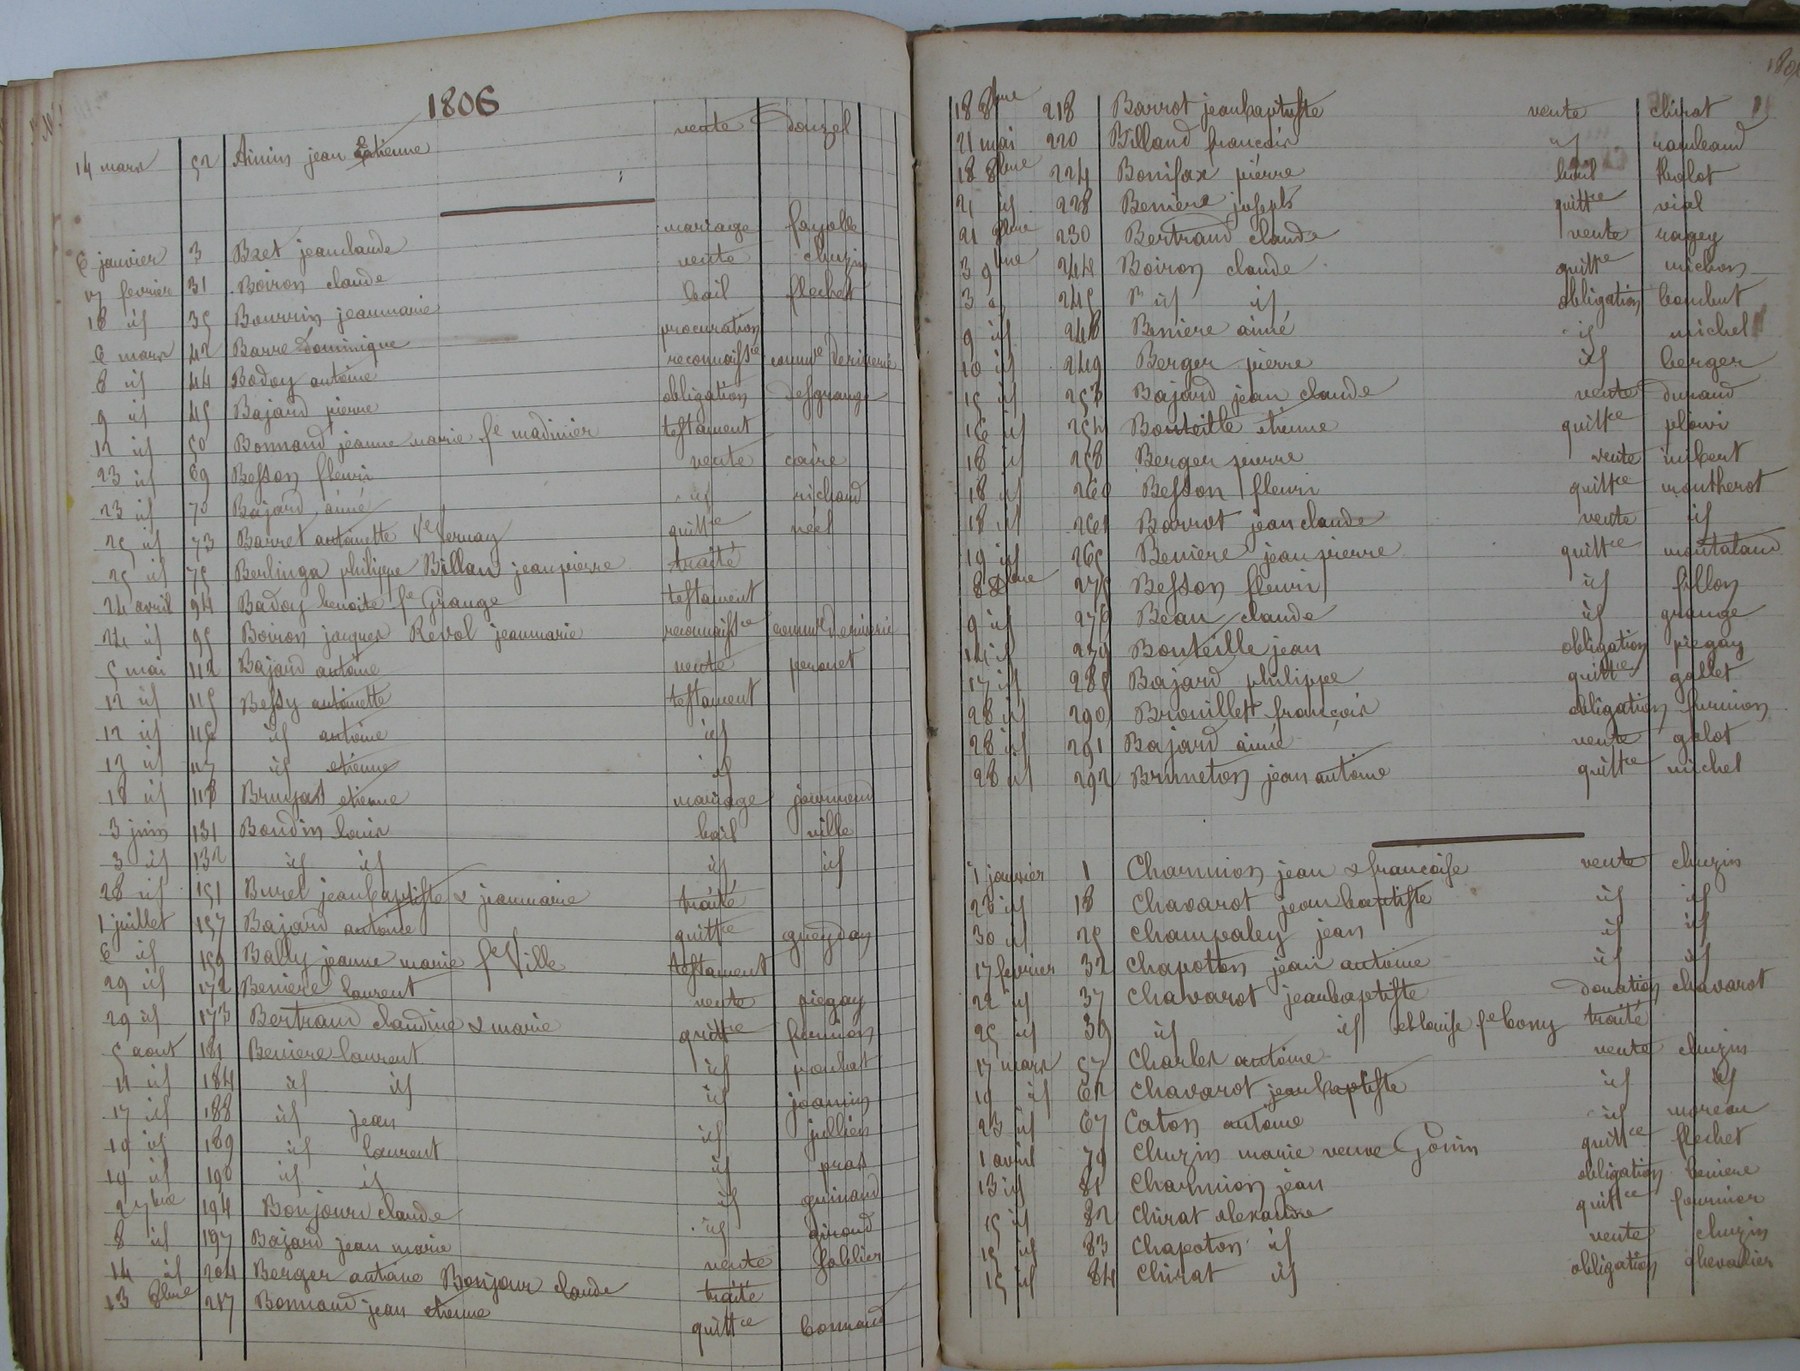 1806
14 mars 52 Ainin jean Etienne vente Douzel
6 janvier 3 Bret jeanclaude mariage fayolle
17 fevrier 31 Boiron claude vente chuzin
18 id 35 Bourrin jeanmarie bail flechet
6 mars 42 Barre Dominique procuration
8 id 44 Badoy antoine reconnaisse comme de riverie
9 id 45 Bajard pierre obligation Desgrange
12 id 50 Bonnand jeanne marie fe madinier testament
23 id 69 Besson fleuri vente coire
23 id 70 Bajard aimé id richard
25 id 73 Barret antoinette Ve Vernay quittce néel
25 id 75 Berlinga philippe Billan jeanpierre traité
24 avril 94 Badoy benoite fe Grange testament
24 id 95 Boiron jacques Revol jeanmarie reconnaisse comme de riverie
5 mai 112 Bajard antoine vente peronet
12 id 115 Bessy antoinette testament
12 id 116 id antoine id
12 id 117 id etienne id
18 id 118 Brujas etienne mariage journoud
3 juin 131 Boudin louis bail ville
3 id 132 id id id id
28 id 151 Burel jeanbaptiste & jeanmarie traité
1 juillet 157 Bajard antoine quittce gueydan
6 id 159 Bally jeanne marie fe Ville testament
29 id 172 Beniere laurent vente piegay
29 id 173 Bertrand claudine & marie quittce furnion
5 aout 181 Beniere laurent id poulat
11 id 184 id id id joannin
17 id 188 id jean id jullien
19 id 189 id laurent id pras
19 id 190 id id id guinand
2 7bre 194 Bonjour claude id giroud
8 id 197 Bajard jean marie vente
14 id 204 Berger antoine Bonjour claude traité
13 8bre 217 Bonnand jean etienne quittce bonnand
18 8bre 218 Barrot jeanbaptiste vente chirat
21 mai 220 Billand francois id rambaud
18 8bre 224 Bonifax pierre bail tholot
21 id 228 Beniere joseph quittce vial
21 8bre 230 Bertrand claude vente ragey
3 9bre 244 Boiron claude quittce michon
3 id 245 id id obligation
9 id 248 Beniere aimé id michel
10 id 249 Berger pierre id berger
15 id 253 Bajard jean claude vente durand
16 id 254 Bouteille etienne quittce
18 id 258 Berger pierre vente imbert
18 id 260 Besson fleuri quittce montherot
18 id 261 Barrot jean claude vente id
19 id 265 Beniere jean pierre quittce montaland
8 Xbre 275 Besson fleuri id fillon
9 id 276 Beau claude id grange
14 id 279 Bouteille jean obligation piegay
17 id 285 Bajard philippe quittce gallet
28 id 290 Brouillet françois obligation furnion
28 id 291 Bajard aimé vente galot
28 id 292 Bruneton jean antoine quittce michel
1 janvier 1 Charmion jean & francoise vente chuzin
28 id 18 Chavarot jeanbaptiste id id
30 id 25 Champaley jean id id
17 fevrier 32 Chapotton jean antoine id id
22 id 37 Chavarot jeanbaptiste donation chavarot
25 id 39 id id et louise fe bony traité
17 mars 57 Charles antoine vente chuzin
19 id 62 Chavarot jeanbaptiste id id
23 id 67 Caton antoine id moreau
1 avril 79 Chuzin marie veuve Gonin quittce flechet
13 id 81 Charmion jean obligation beniere
15 id 82 Chirat alexandre quittce fournier
15 id 83 Chapoton id vente chuzin
15 id 84 Chirat id obligation chevallier